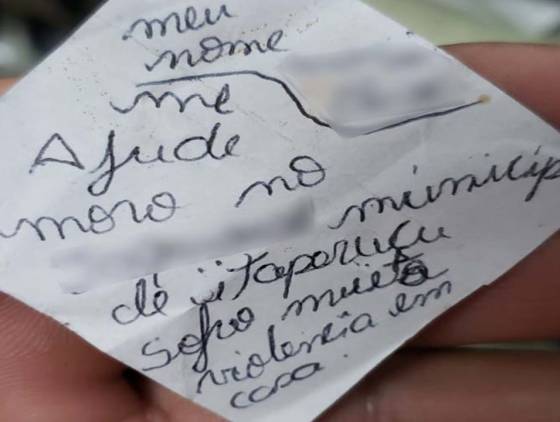 meu
nome
me
Ajude
moro no
municip
de itaperuçu
sofro muita
violencia em
casa.